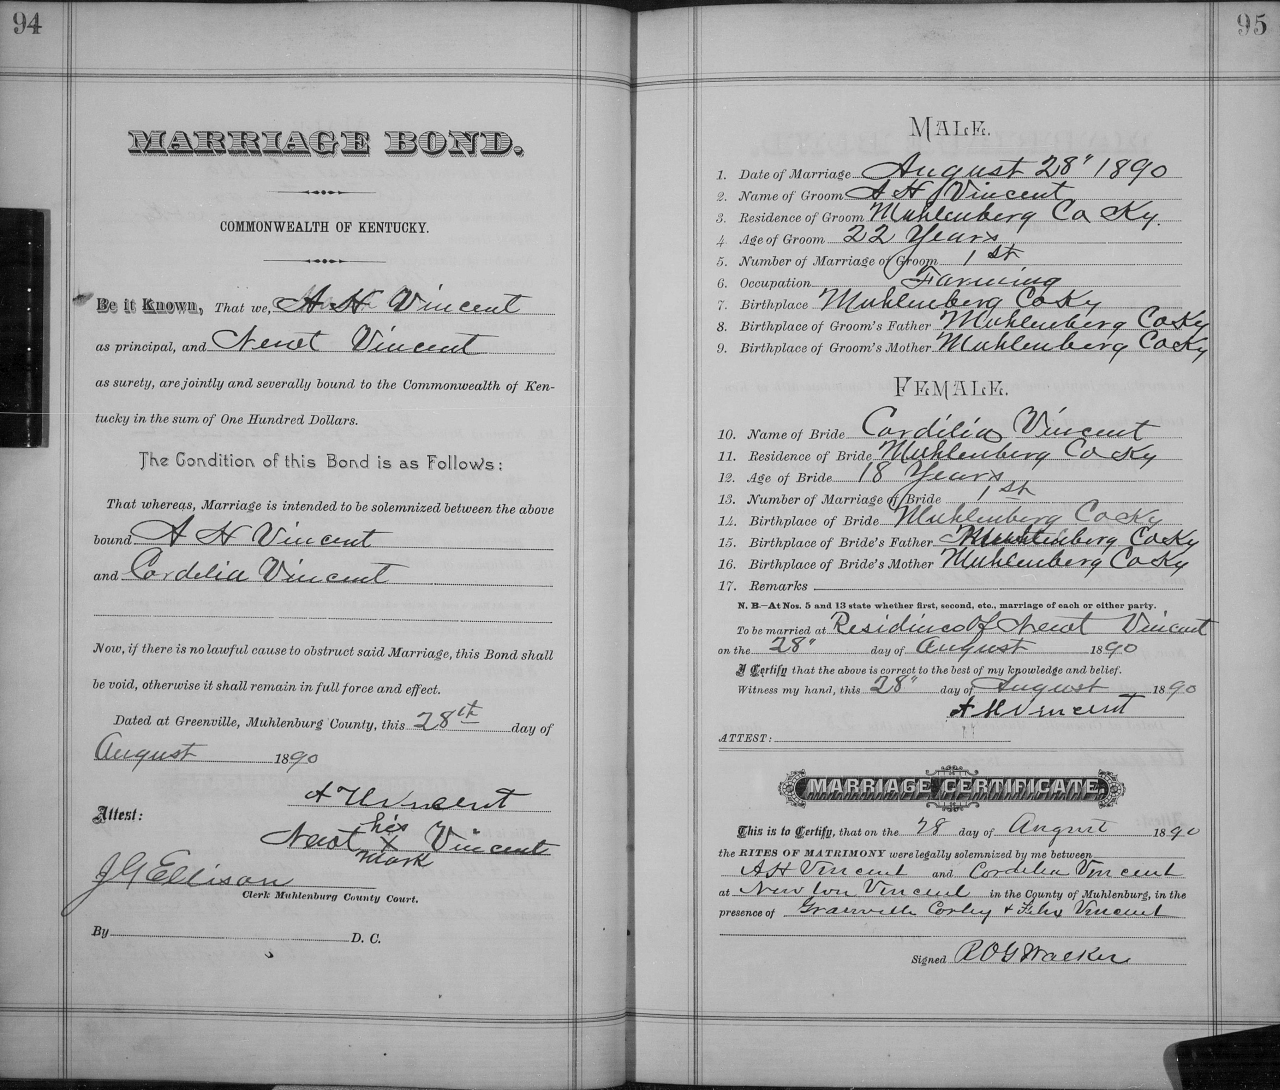 94
MARRIAGE BOND.
COMMONWEALTH OF KENTUCKY.
Be it Known, That we, A H Vincent
as principal, and Newt Vincent
as surety, are jointly and severally bound to the Commonwealth of Ken-
tucky in the sum of One Hundred Dollars.
The Condition of this Bond is as Follows:
That whereas, Marriage is intended to be solemnized between the above
bound A H Vincent
and Cordelia Vincent
Now, if there is no lawful cause to obstruct said Marriage, this Bond shall
be void, otherwise it shall remain in full force and effect.
Dated at Greenville, Muhlenburg County, this 28th day of
August 1890
A H Vincent
Attest:
his
Newt X Vincent
mark
J G Ellison
Clerk Muhlenburg County Court.
By D. C.
95
MALE.
1. Date of Marriage August 28" 1890
2. Name of Groom A H Vincent
3. Residence of Groom Muhlenberg Co Ky.
4 Age of Groom 22 Years
5. Number of Marriage of Groom 1st
6. Occupation Farming
7. Birthplace Muhlenberg Co Ky
8. Birthplace of Groom's Father Muhlenberg Co Ky
9. Birthplace of Groom's Mother Muhlenberg Co Ky
FEMALE.
10. Name of Bride Cordilia Vincent
11. Residence of Bride Muhlenberg Co Ky
12. Age of Bride 18 Years
13. Number of Marriage of Bride 1st
14. Birthplace of Bride Muhlenberg Co Ky
15. Birthplace of Bride's Father Muhlenberg Co Ky
16. Birthplace of Bride's Mother Muhlenberg Co Ky
17. Remarks
N. B.—At Nos. 5 and 13 state whether first, second, etc., marriage of each or either party.
To be married at Residince Of Newt Vincent
on the 28" day of August 1890
I Certify that the above is correct to the best of my knowledge and belief.
Witness my hand, this 28" day of August 1890
A H Vincent
ATTEST:
MARRIAGE CERTIFICATE.
This is to Certify, that on the 28 day of August 1890
the RITES OF MATRIMONY were legally solemnized by me between
A H Vincent and Cordelia Vincent
at Newton Vincent in the County of Muhlenburg, in the
presence of Granville Corley + Felix Vincent
Signed R O G Walker